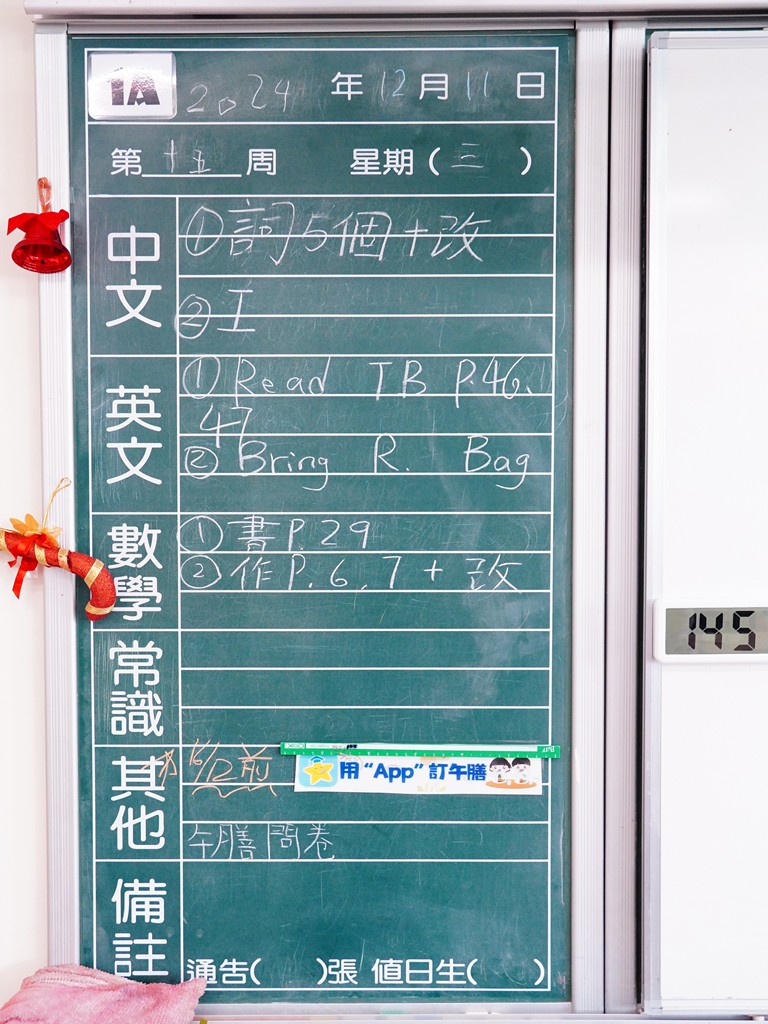 1A 2024 年 12 月 11 日
第 十五 周 星期 ( 三 )
中文
① 詞5個+改
② 工
英文
① Read TB P.46,
47
② Bring R. Bag
數學
① 書P.29
② 作P.6,7 + 改
常識
145
其他
16/12前
用“App”訂午膳
午膳問卷
備註
通告( )張 值日生( )